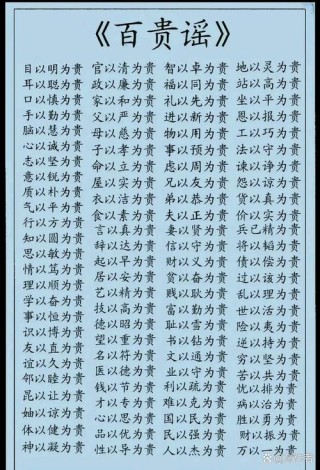 《百贵谣》
目以明为贵
耳以聪为贵
口以慎为贵
手以勤为贵
脑以慧为贵
心以诚为贵
志以坚为贵
意以锐为贵
质以朴为贵
气以平为贵
行以方为贵
知以圆为贵
思以敏为贵
情以笃为贵
理以顺为贵
学以奋为贵
事以恒为贵
识以博为贵
友以直为贵
谊以久为贵
邻以睦为贵
昆以让为贵
妯以谅为贵
体以健为贵
神以凝为贵
官以清为贵
政以廉为贵
家以和为贵
父以严为贵
母以慈为贵
子以孝为贵
命以立为贵
屋以实为贵
衣以洁为贵
食以素为贵
言以真为贵
辞以达为贵
起以早为贵
居以安为贵
艺以精为贵
技以高为贵
德以昭为贵
望以重为贵
名以符为贵
医以德为贵
钱以节为贵
才以专为贵
心以思为贵
品以优为贵
性以导为贵
智以卓为贵
福以同为贵
礼以先为贵
进以新为贵
物以用为贵
事以预为贵
虑以周为贵
兄以友为贵
弟以恭为贵
夫以正为贵
妻以贤为贵
信以守为贵
财以义为贵
贫以奋为贵
贱以耿为贵
富以勤为贵
耻以雪为贵
书以钻为贵
文以通为贵
业以守为贵
利以疏为贵
难以克为贵
国以民为贵
民以强为贵
人以杰为贵
地以灵为贵
站以高为贵
坐以平为贵
恩以报为贵
工以巧为贵
法以守为贵
谏以诤为贵
怨以谅为贵
货以真为贵
价以实为贵
兵已精为贵
将以韬为贵
债以偿为贵
过以该为贵
乱以理为贵
世以活为贵
险以夷为贵
逆以持为贵
穷以坚为贵
苦以共为贵
忧以排为贵
病以治为贵
胜以勇为贵
财以振为贵
万以一为贵